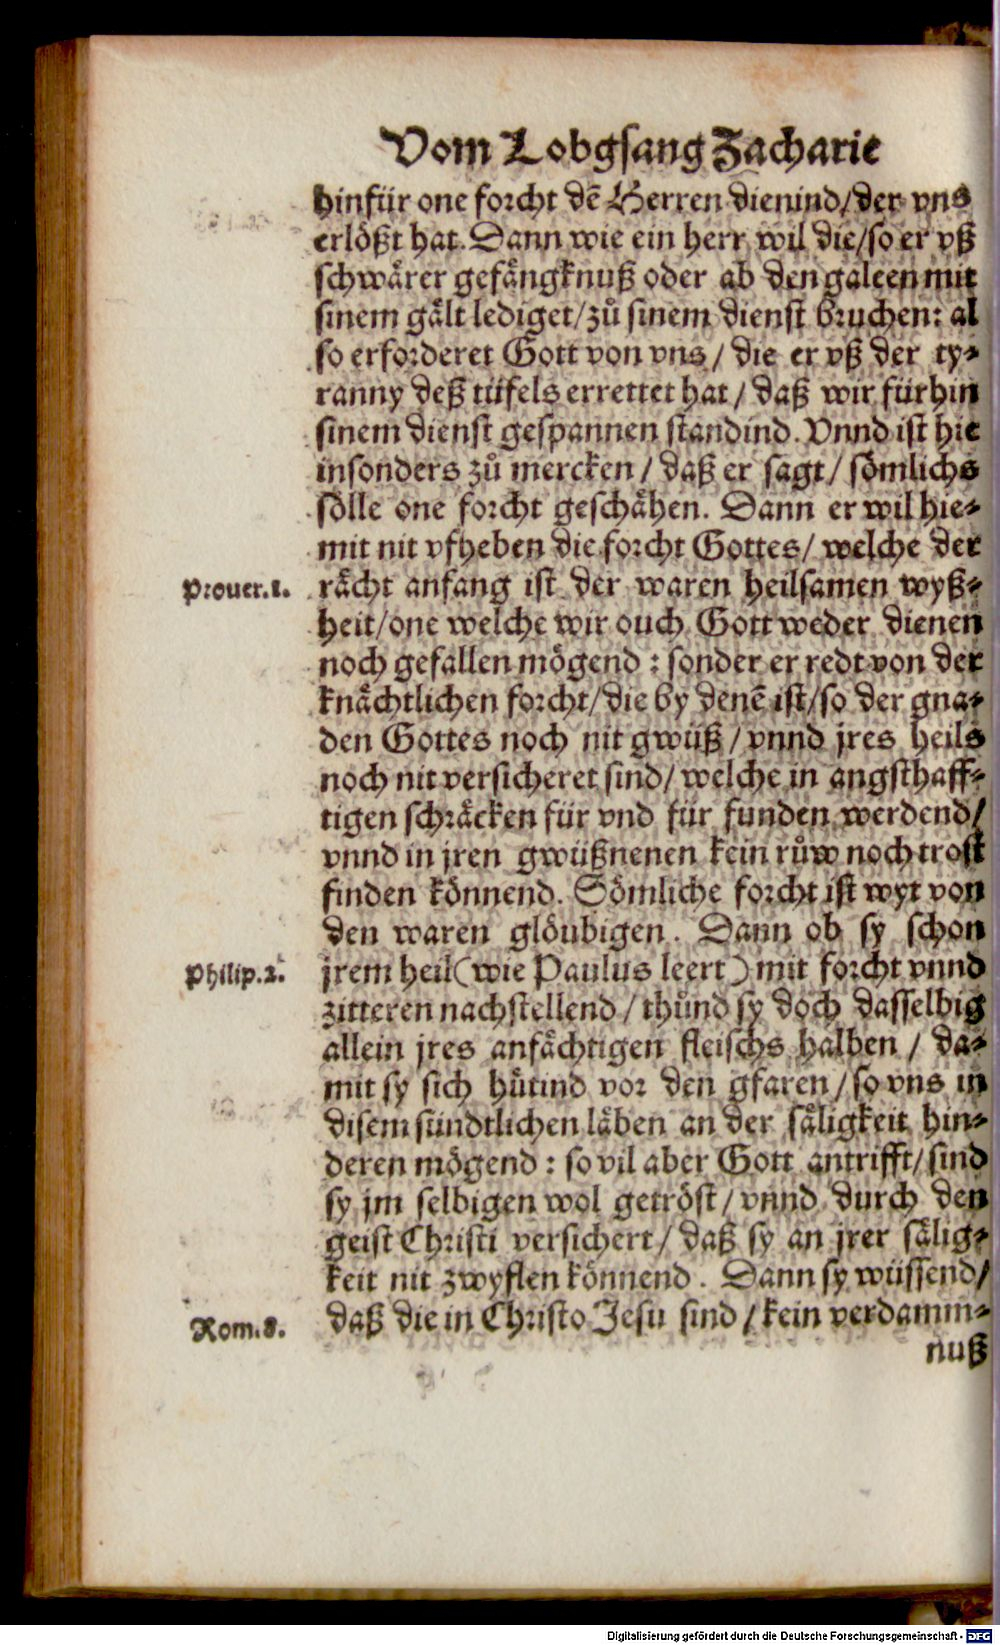 Vom Lobgsang Zacharie
hinfür one forcht dē Herren dienind/der vns
erlößt hat. Dann wie ein herr wil die/so er vß
schwårer gefångknuß oder ab den galeen mit
sinem gålt lediget/zů sinem dienst bruchen: al
so erforderet Gott von vns/ die er vß der ty⸗
ranny deß tüfels errettet hat/ daß wir fürhin
sinem dienst gespannen standind. Vnnd ist hie
insonders zů mercken/ daß er sagt/ sömlichs
sölle one forcht geschåhen. Dann er wil hie⸗
mit nit vfheben die forcht Gottes/ welche der
Prouer.1. råcht anfang ist der waren heilsamen wyß⸗
heit/one welche wir ouch Gott weder dienen
noch gefallen mögend: sonder er redt von der
knåchtlichen forcht/die by denē ist/so der gna⸗
den Gottes noch nit gwüß/vnnd jres heils
noch nit versicheret sind/welche in angsthaff⸗
tigen schråcken für vnd für funden werdend/
vnnd in jren gwüßnenen kein růw noch trost
finden könnend. Sömliche forcht ist wyt von
den waren glöubigen. Dann ob sy schon
Philip.2. jrem heil(wie Paulus leert) mit forcht vnnd
zitteren nachstellend/thůnd sy doch dasselbig
allein jres anfåchtigen fleischs halben/ da⸗
mit sy sich hütind vor den gfaren/so vns in
disem sündtlichen låben an der såligkeit hin⸗
deren mögend: so vil aber Gott antrifft/sind
sy jm selbigen wol getröst/vnnd durch den
geist Christi versichert/ daß sy an jrer sålig⸗
keit nit zwyflen könnend. Dann sy wüssend/
Rom.8. daß die in Christo Jesu sind/kein verdamm⸗
nuß
Digitalisierung gefördert durch die Deutsche Forschungsgemeinschaft - DFG